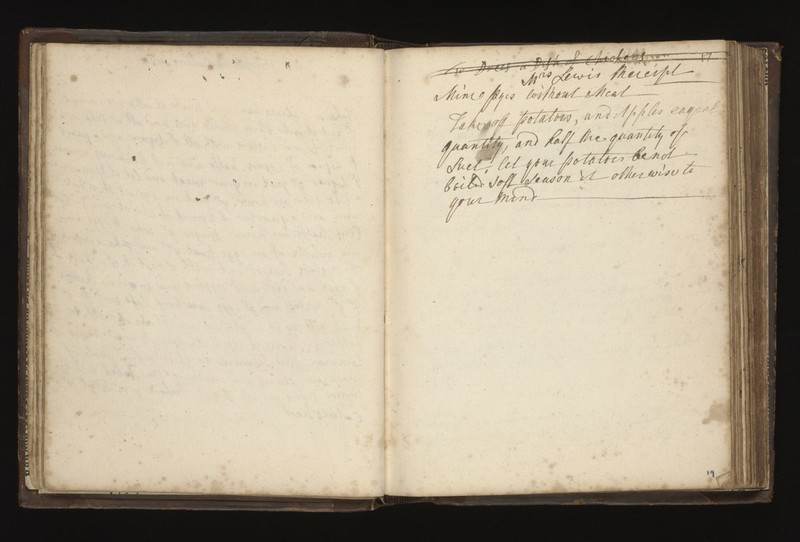 To Dress a Dish of Chickens 17
Mrs Lewis Receipt
Mince pyes without Meat
Take potatoes, and Apples eaqual
quantity, and half the quantity of
Suet, let your potatoes be not
boild soft season it otherwise to
your mind
19